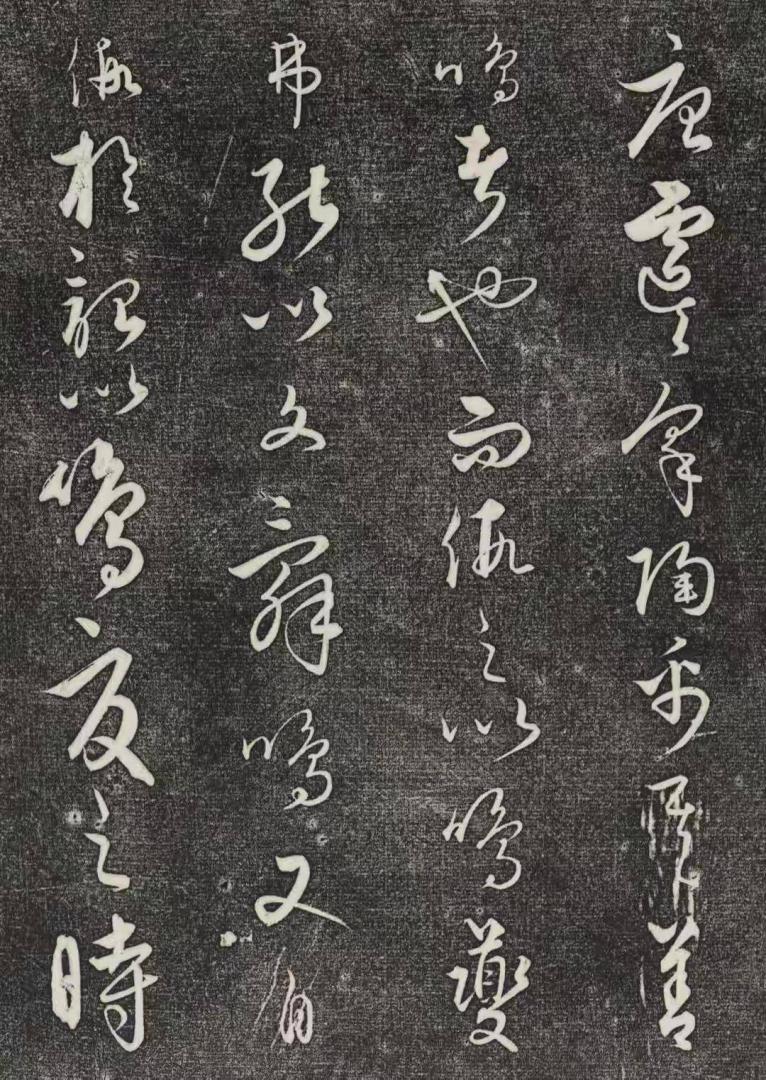 唐虞咎陶禹其善
鳴者也而假之以鳴夔
弗能以文辭鳴又自
假於韶以鳴夏之時